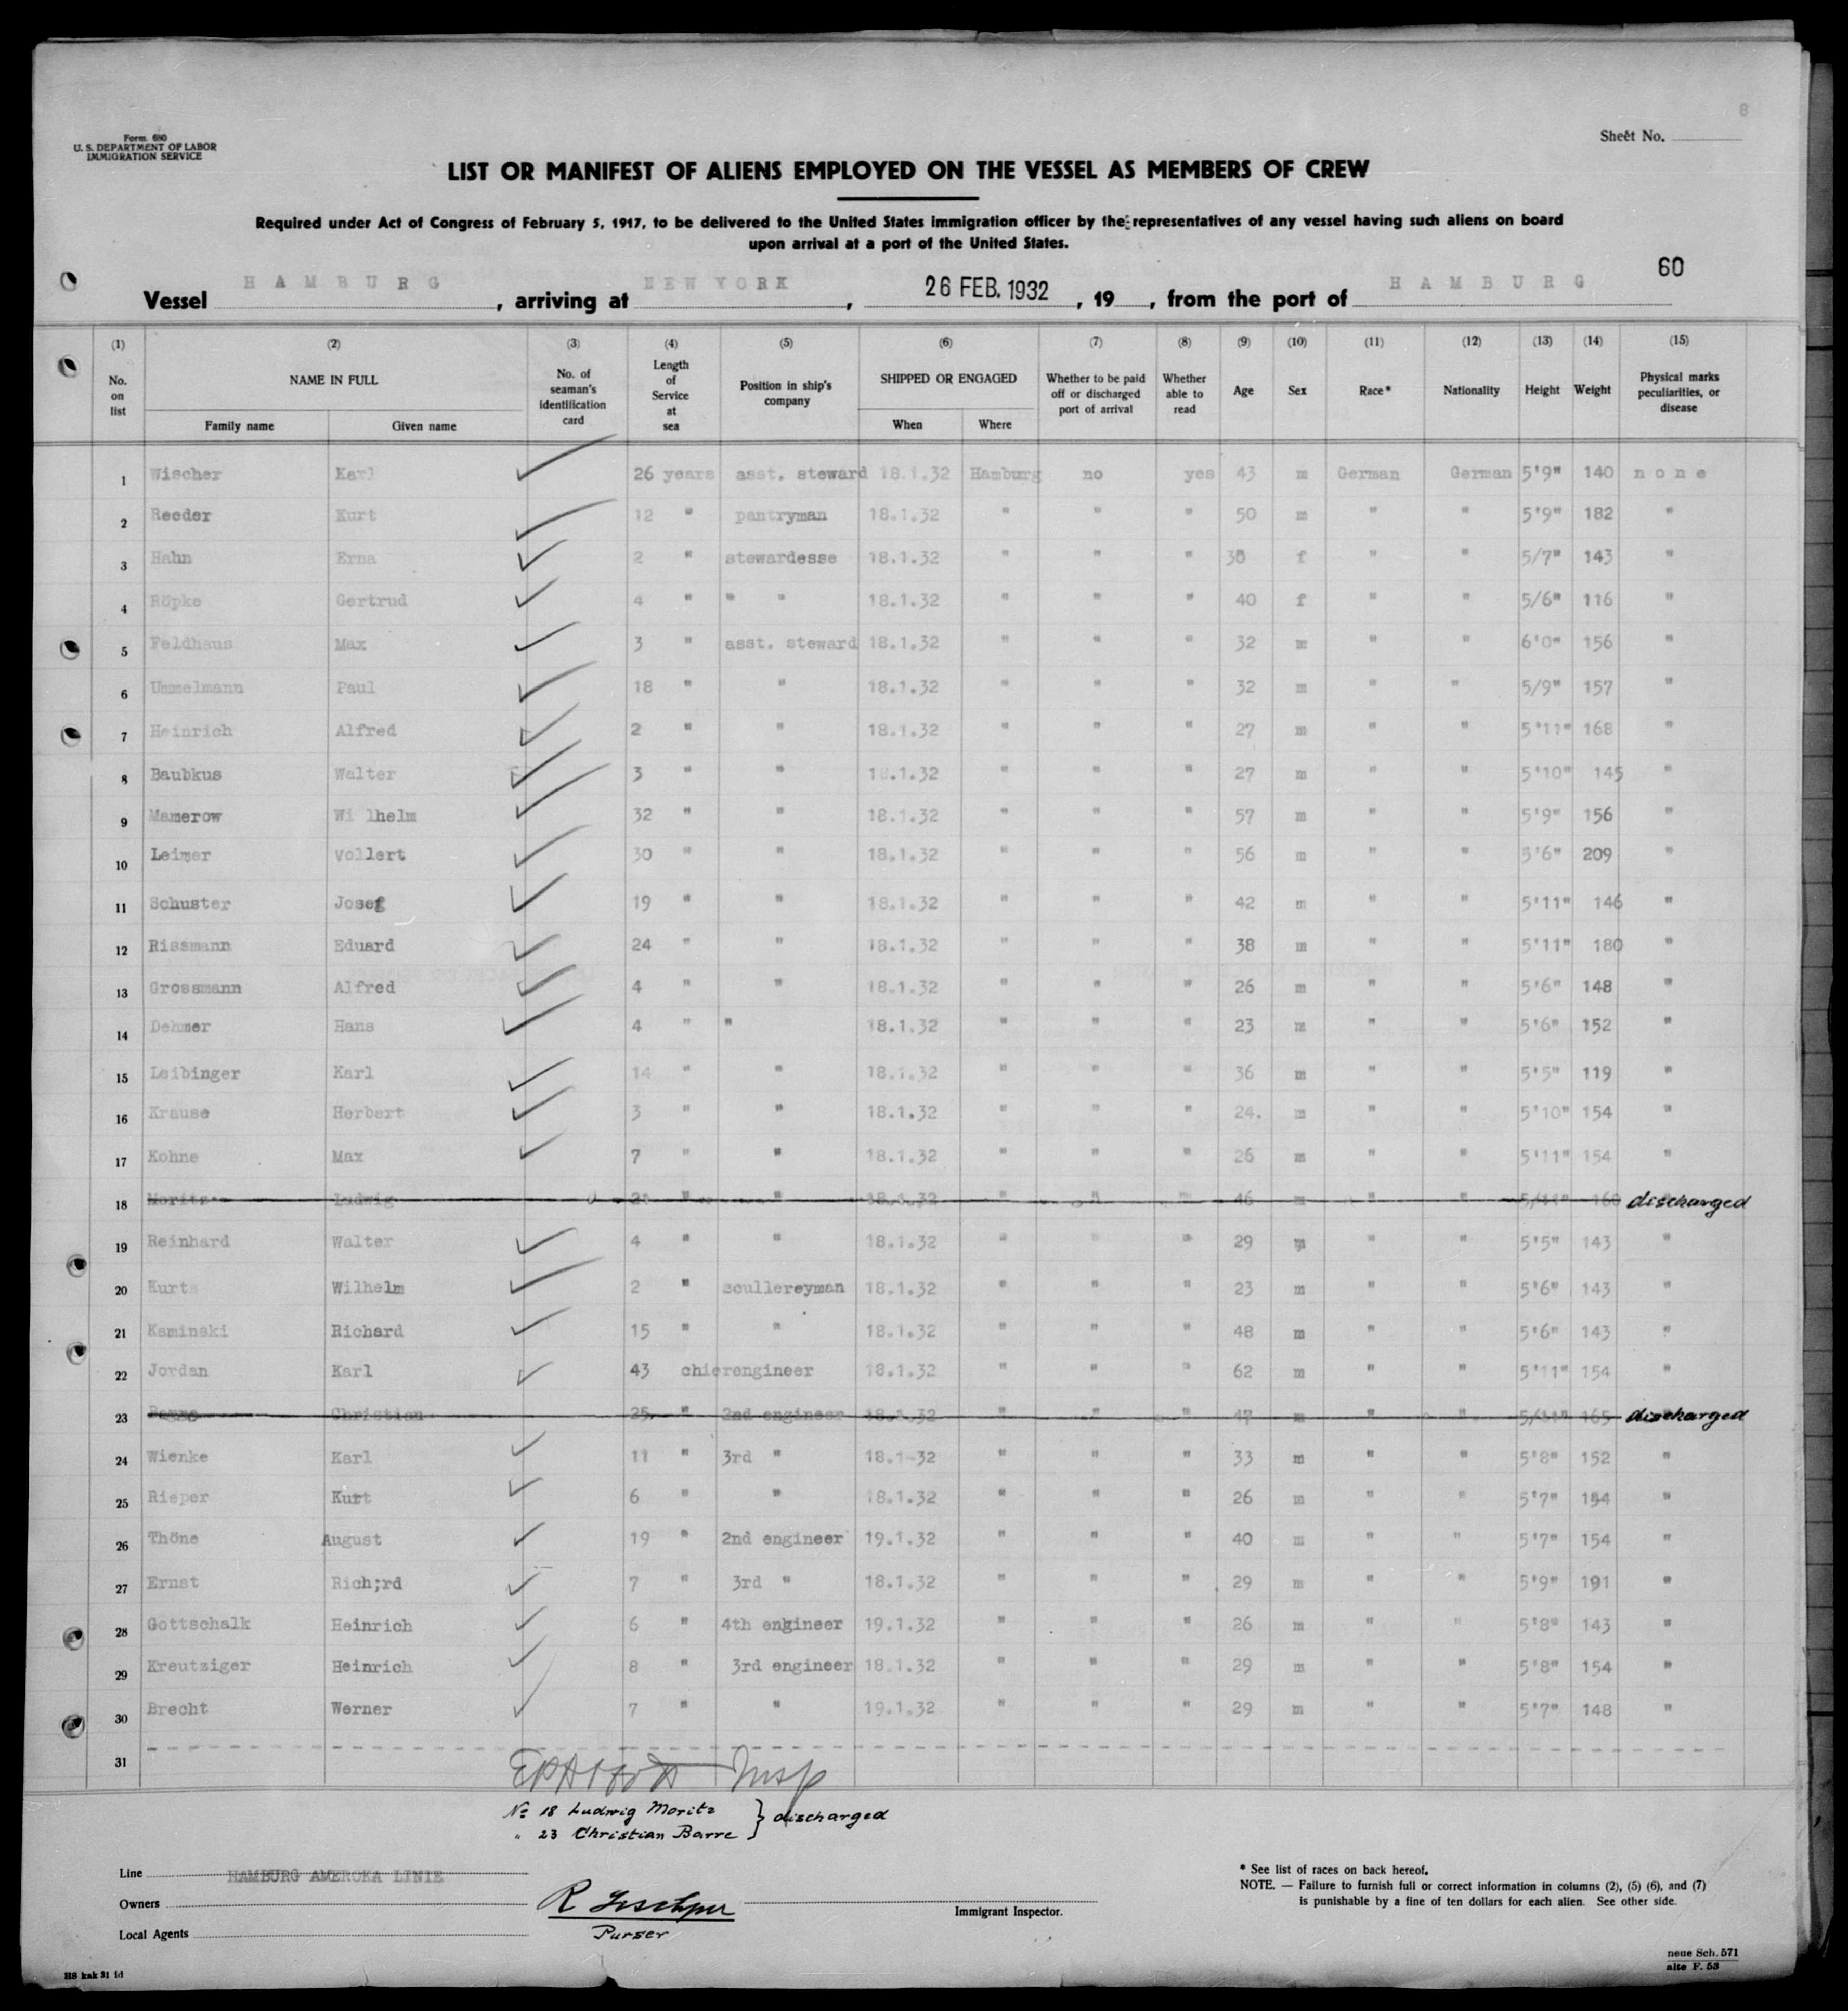 8
Form. 680
U. S. DEPARTMENT OF LABOR
IMMIGRATION SERVICE
Sheet No.
LIST OR MANIFEST OF ALIENS EMPLOYED ON THE VESSEL AS MEMBERS OF CREW
Required under Act of Congress of February 5, 1917, to be delivered to the United States immigration officer by the representatives of any vessel having such aliens on board
upon arrival at a port of the United States.
60
Vessel HAMBURG, arriving at NEW YORK, 26 FEB. 1932, 19, from the port of HAMBURG
(1) (2) (3) (4) (5) (6) (7) (8) (9) (10) (11) (12) (13) (14) (15)
No. on list NAME IN FULL Family name Given name No. of seaman's identification card Length of Service at sea Position in ship's company SHIPPED OR ENGAGED When Where Whether to be paid off or discharged port of arrival Whether able to read Age Sex Race* Nationality Height Weight Physical marks peculiarities, or disease
1 Wischer Karl 26 years asst. steward 18.1.32 Hamburg no yes 43 m German German 5'9" 140 none
2 Reeder Kurt 12 " pantryman 18.1.32 " " " 50 m " " 5'9" 182 "
3 Hahn Erna 2 " stewardesse 18.1.32 " " " f " " 5/7" 143 "
4 Röpke Gertrud 4 " " " 18.1.32 " " " 40 f " " 5/6" 116 "
5 Feldhaus Max 3 " asst. steward 18.1.32 " " " 32 m " " 6'0" 156 "
6 Ummelmann Paul 18 " " 18.1.32 " " " 32 m " " 5/9" 157 "
7 Heinrich Alfred 2 " " 18.1.32 " " " 27 m " " 5'11" 168 "
8 Baubkus Walter 3 " " 18.1.32 " " " 27 m " " 5'10" 145 "
9 Mamerow Wi lhelm 32 " " 18.1.32 " " " 57 m " " 5'9" 156 "
10 Leimer Vollert 30 " " 18.1.32 " " " 56 m " " 5'6" 209 "
11 Schuster Josef 19 " " 18.1.32 " " " 42 m " " 5'11" 146 "
12 Rissmann Eduard 24 " " 18.1.32 " " " 38 m " " 5'11" 180 "
13 Grossmann Alfred 4 " " 18.1.32 " " " 26 m " " 5'6" 148 "
14 Dehmer Hans 4 " " 18.1.32 " " " 23 m " " 5'6" 152 "
15 Leibinger Karl 14 " " 18.1.32 " " " 36 m " " 5'5" 119 "
16 Krause Herbert 3 " " 18.1.32 " " " 24. m " " 5'10" 154 "
17 Kohne Max 7 " " 18.1.32 " " " 26 m " " 5'11" 154 "
18 Moritz Ludwig 21 " " 18.1.32 " " " 46 m " " 5/11" 160 discharged
19 Reinhard Walter 4 " " 18.1.32 " " " 29 m " " 5'5" 143 "
20 Kurtz Wilhelm 2 " scullereyman 18.1.32 " " " 23 m " " 5'6" 143 "
21 Kaminski Richard 15 " " 18.1.32 " " " 48 m " " 5'6" 143 "
22 Jordan Karl 43 chierengineer 18.1.32 " " " 62 m " " 5'11" 154 "
23 Christian 25 " 2nd engineer 18.1.32 " " " 47 m " " 5/11" 165 discharged
24 Wienke Karl 11 " 3rd " 18.1-32 " " " 33 m " " 5'8" 152 "
25 Rieper Kurt 6 " " 18.1.32 " " " 26 m " " 5'7" 154 "
26 Thöne August 19 " 2nd engineer 19.1.32 " " " 40 m " " 5'7" 154 "
27 Ernst Rich;rd 7 " 3rd " 18.1.32 " " " 29 m " " 5'9" 191 "
28 Gottschalk Heinrich 6 " 4th engineer 19.1.32 " " " 26 m " " 5'8" 143 "
29 Kreutziger Heinrich 8 " 3rd engineer 18.1.32 " " " 29 m " " 5'8" 154 "
30 Brecht Werner 7 " " 19.1.32 " " " 29 m " " 5'7" 148 "
31
Insp
No 18 Ludwig Moritz } discharged
" 23 Christian Barre
Line HAMBURG AMEROKA LINIE
Owners
Local Agents
R
Purser
Immigrant Inspector.
* See list of races on back hereof.
NOTE. — Failure to furnish full or correct information in columns (2), (5) (6), and (7)
is punishable by a fine of ten dollars for each alien. See other side.
neue Sch. 571
alte F. 53
HS kak 31 1d